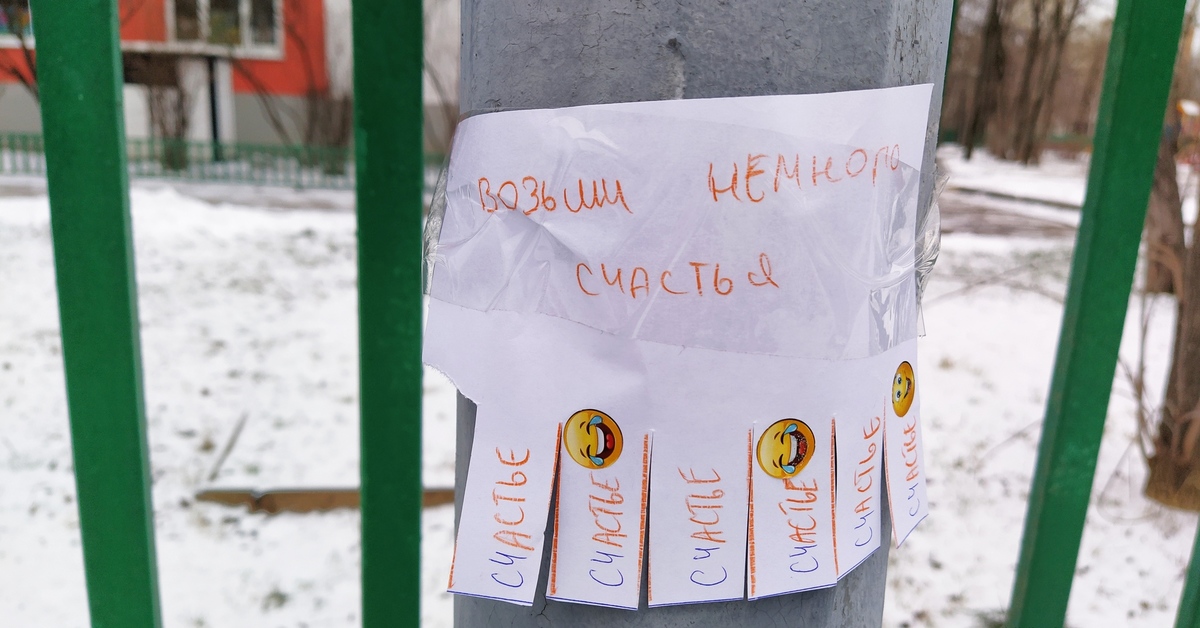 ВОЗЬМИ НЕМНОГО
СЧАСТЬЯ
СЧАСТЬЕ
СЧАСТЬЕ
СЧАСТЬЕ
СЧАСТЬЕ
СЧАСТЬЕ
СЧАСТЬЕ